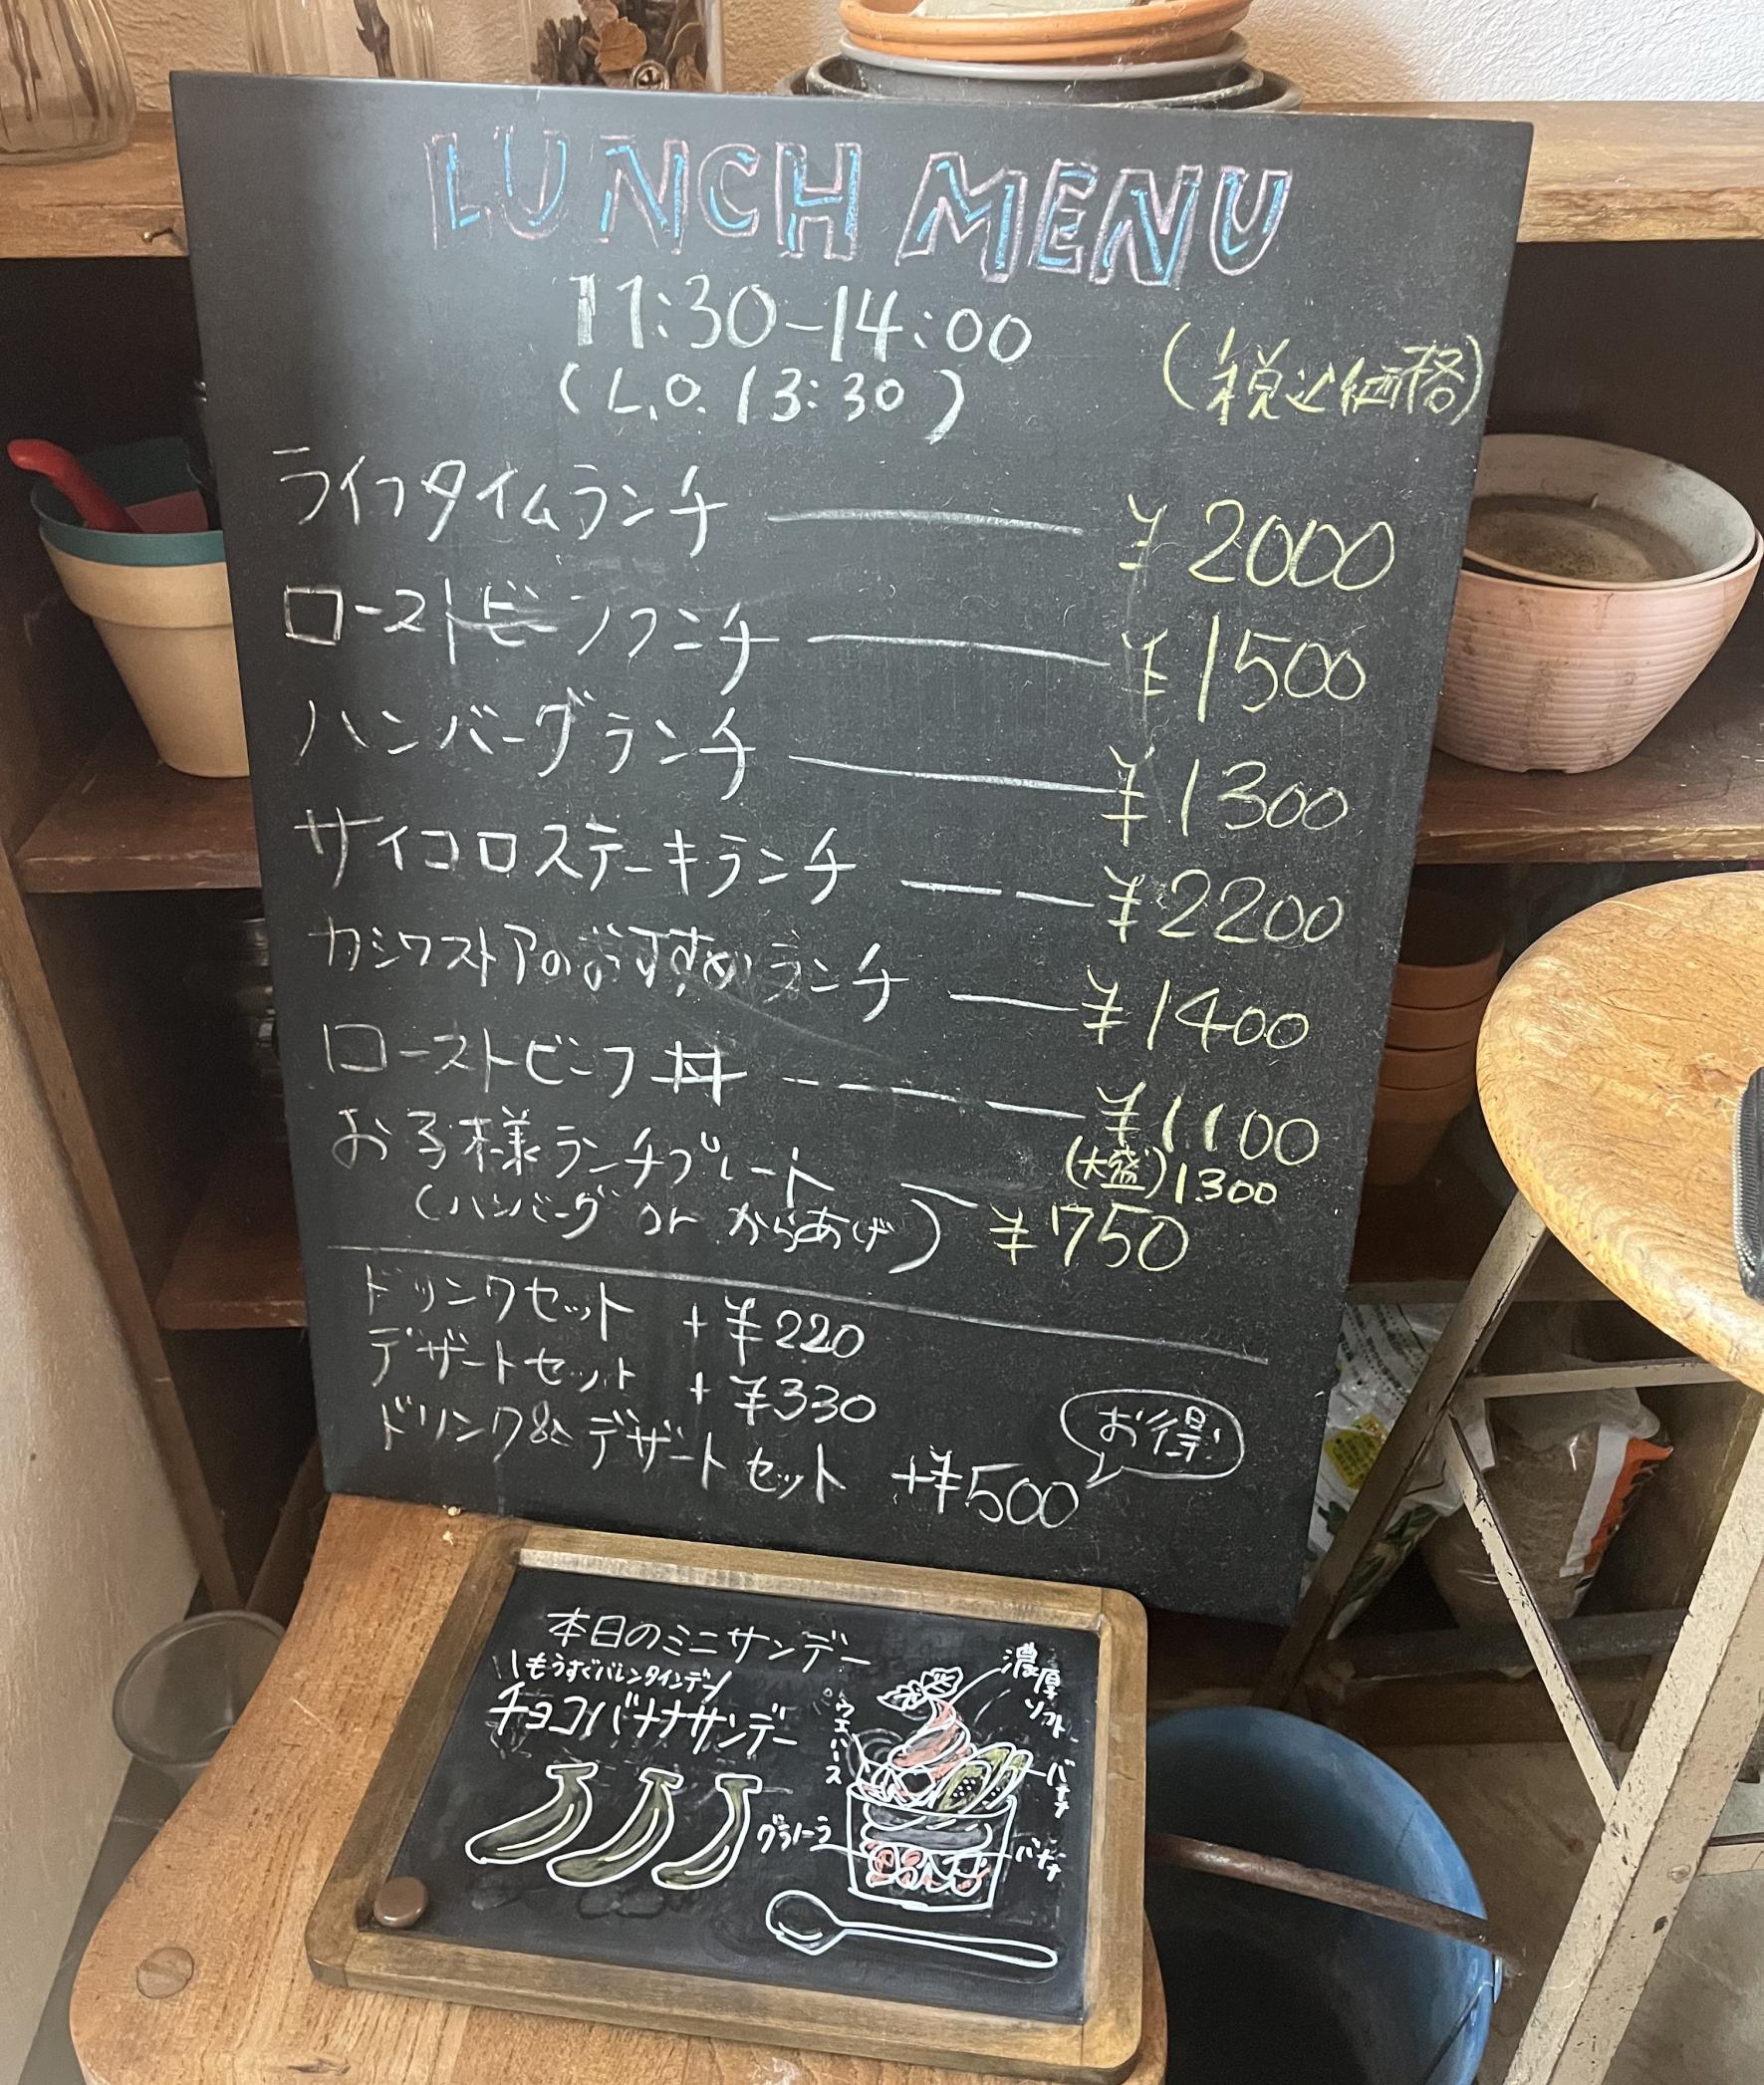 LUNCH MENU
11:30-14:00
(L.O. 13:30)
(税込価格)
ライフタイムランチ ¥2000
ローストビーフランチ ¥1500
ハンバーグランチ ¥1300
サイコロステーキランチ ¥2200
カシワストアのおすすめランチ ¥1400
ローストビーフ丼 ¥1100
(大盛)1300
お子様ランチプレート
(ハンバーグ or からあげ) ¥750
ドリンクセット +¥220
デザートセット +¥330
ドリンク&デザートセット +¥500
お得!
本日のミニサンデー
\もうすぐバレンタインデー/
チョコバナナサンデー
濃厚
ソフト
ウエハース
バナナ
グラノーラ
バナナ